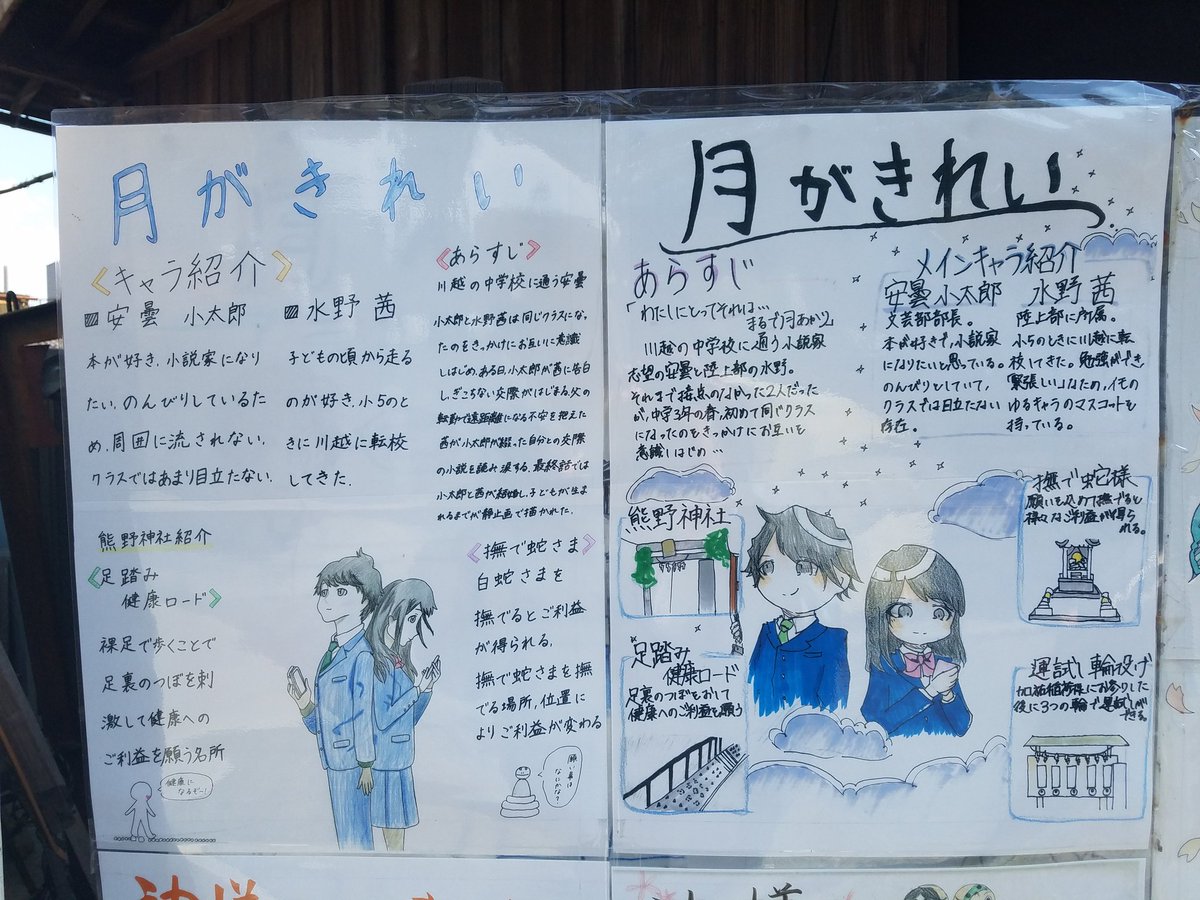 月がきれい
《キャラ紹介》
安曇 小太郎
本が好き.小説家になり
たい.のんびりしているた
め.周囲に流されない.
クラスではあまり目立たない.
水野 茜
子どもの頃から走る
のが好き.小5のと
きに川越に転校
してきた.
《あらすじ》
川越の中学校に通う安曇
小太郎と水野茜は同じクラスにな.
たのをきっかけにお互いに意識
しはじめ.ある日.小太郎が茜に告白
し.ぎこちない交際がはじまる.父の
転勤で遠距離になる不安を抱えた
茜が小太郎が綴った自分との交際
の小説を読み涙する.最終話では
小太郎と茜が結婚し.子どもが生ま
れるまでが静止画で描かれた.
熊野神社紹介
《足踏み
健康ロード》
裸足で歩くことで
足裏のつぼを刺
激して健康への
ご利益を願う名所
健康に
なるぞー!
《撫で蛇さま》
白蛇さまを
撫でるとご利益
が得られる.
撫で蛇さまを撫
でる場所.位置に
よりご利益が変わる
願い事は
なにかな?
月がきれい
あらすじ
「わたしにとってそれは…
まるで月あかり」
川越の中学校に通う小説家
志望の安曇と陸上部の水野。
それまで接点のなかった2人だった
が、中学3年の春、初めて同じクラス
になったのをきっかけにお互いを
意識しはじめ…
メインキャラ紹介
安曇 小太郎
文芸部部長。
本が好きで、小説家
になりたいと思っている。
のんびりとしていて、
クラスでは目立たない
存在。
水野 茜
陸上部に所属。
小5のときに川越に転
校してきた。勉強ができ、
「緊張しい」なため、イモの
ゆるキャラのマスコットを
持っている。
熊野神社
撫で蛇様
願いを込めて撫でると
様々なご利益が得ら
れる。
足踏み
健康ロード
足裏のつぼをおして
健康へのご利益を願う
運試し輪投げ
後に3つの輪で運試しが
できる。